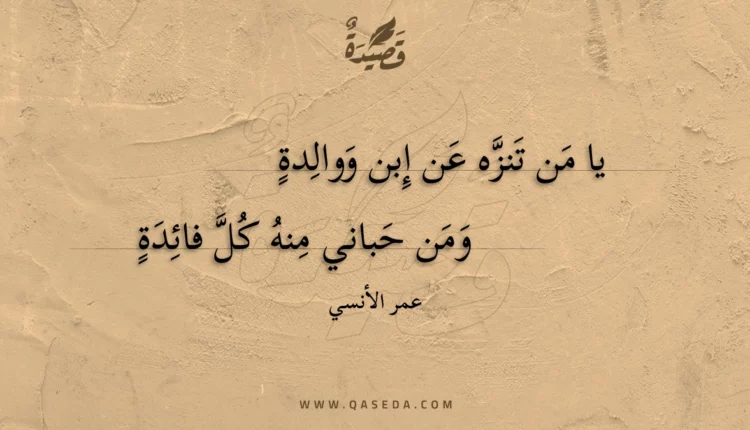 قَصِيدَةٌ
يا مَن تَنزَّه عَن إِبن وَوالِدةٍ
وَمَن حَباني مِنهُ كُلَّ فائِدَةٍ
عمر الأنسي
WWW.QASEDA.COM